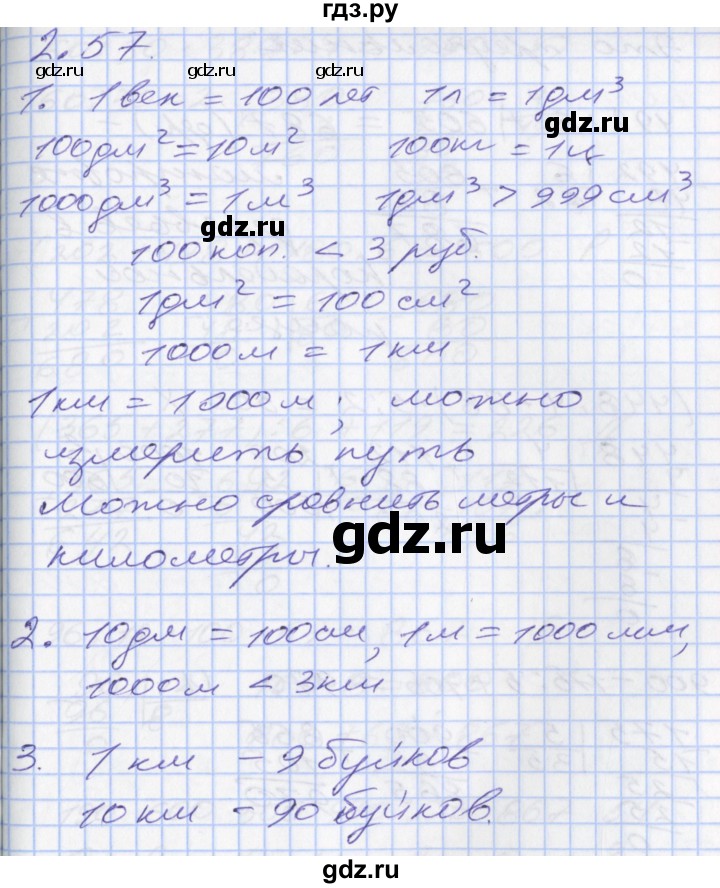 гдз.ру
2.57.
gdz.ru gdz.ru gdz.ru
1. 1 век = 100 лет 1л = 1дм³
gdz.ru
100дм² = 10м² 100кг = 1ц
1000дм³ = 1м³ 1дм³ > 999см³
gdz.ru
100 коп. < 3 руб.
1дм² = 100см²
1000м = 1км
1км = 1000м; можно
измерить путь
Можно сравнить метры и
gdz.ru
километры.
2. 10дм = 100см, 1м = 1000мм,
1000м < 3км
3. 1 км – 9 буйков
10км – 90 буйков.
gdz.ru gdz.ru
gdz.ru